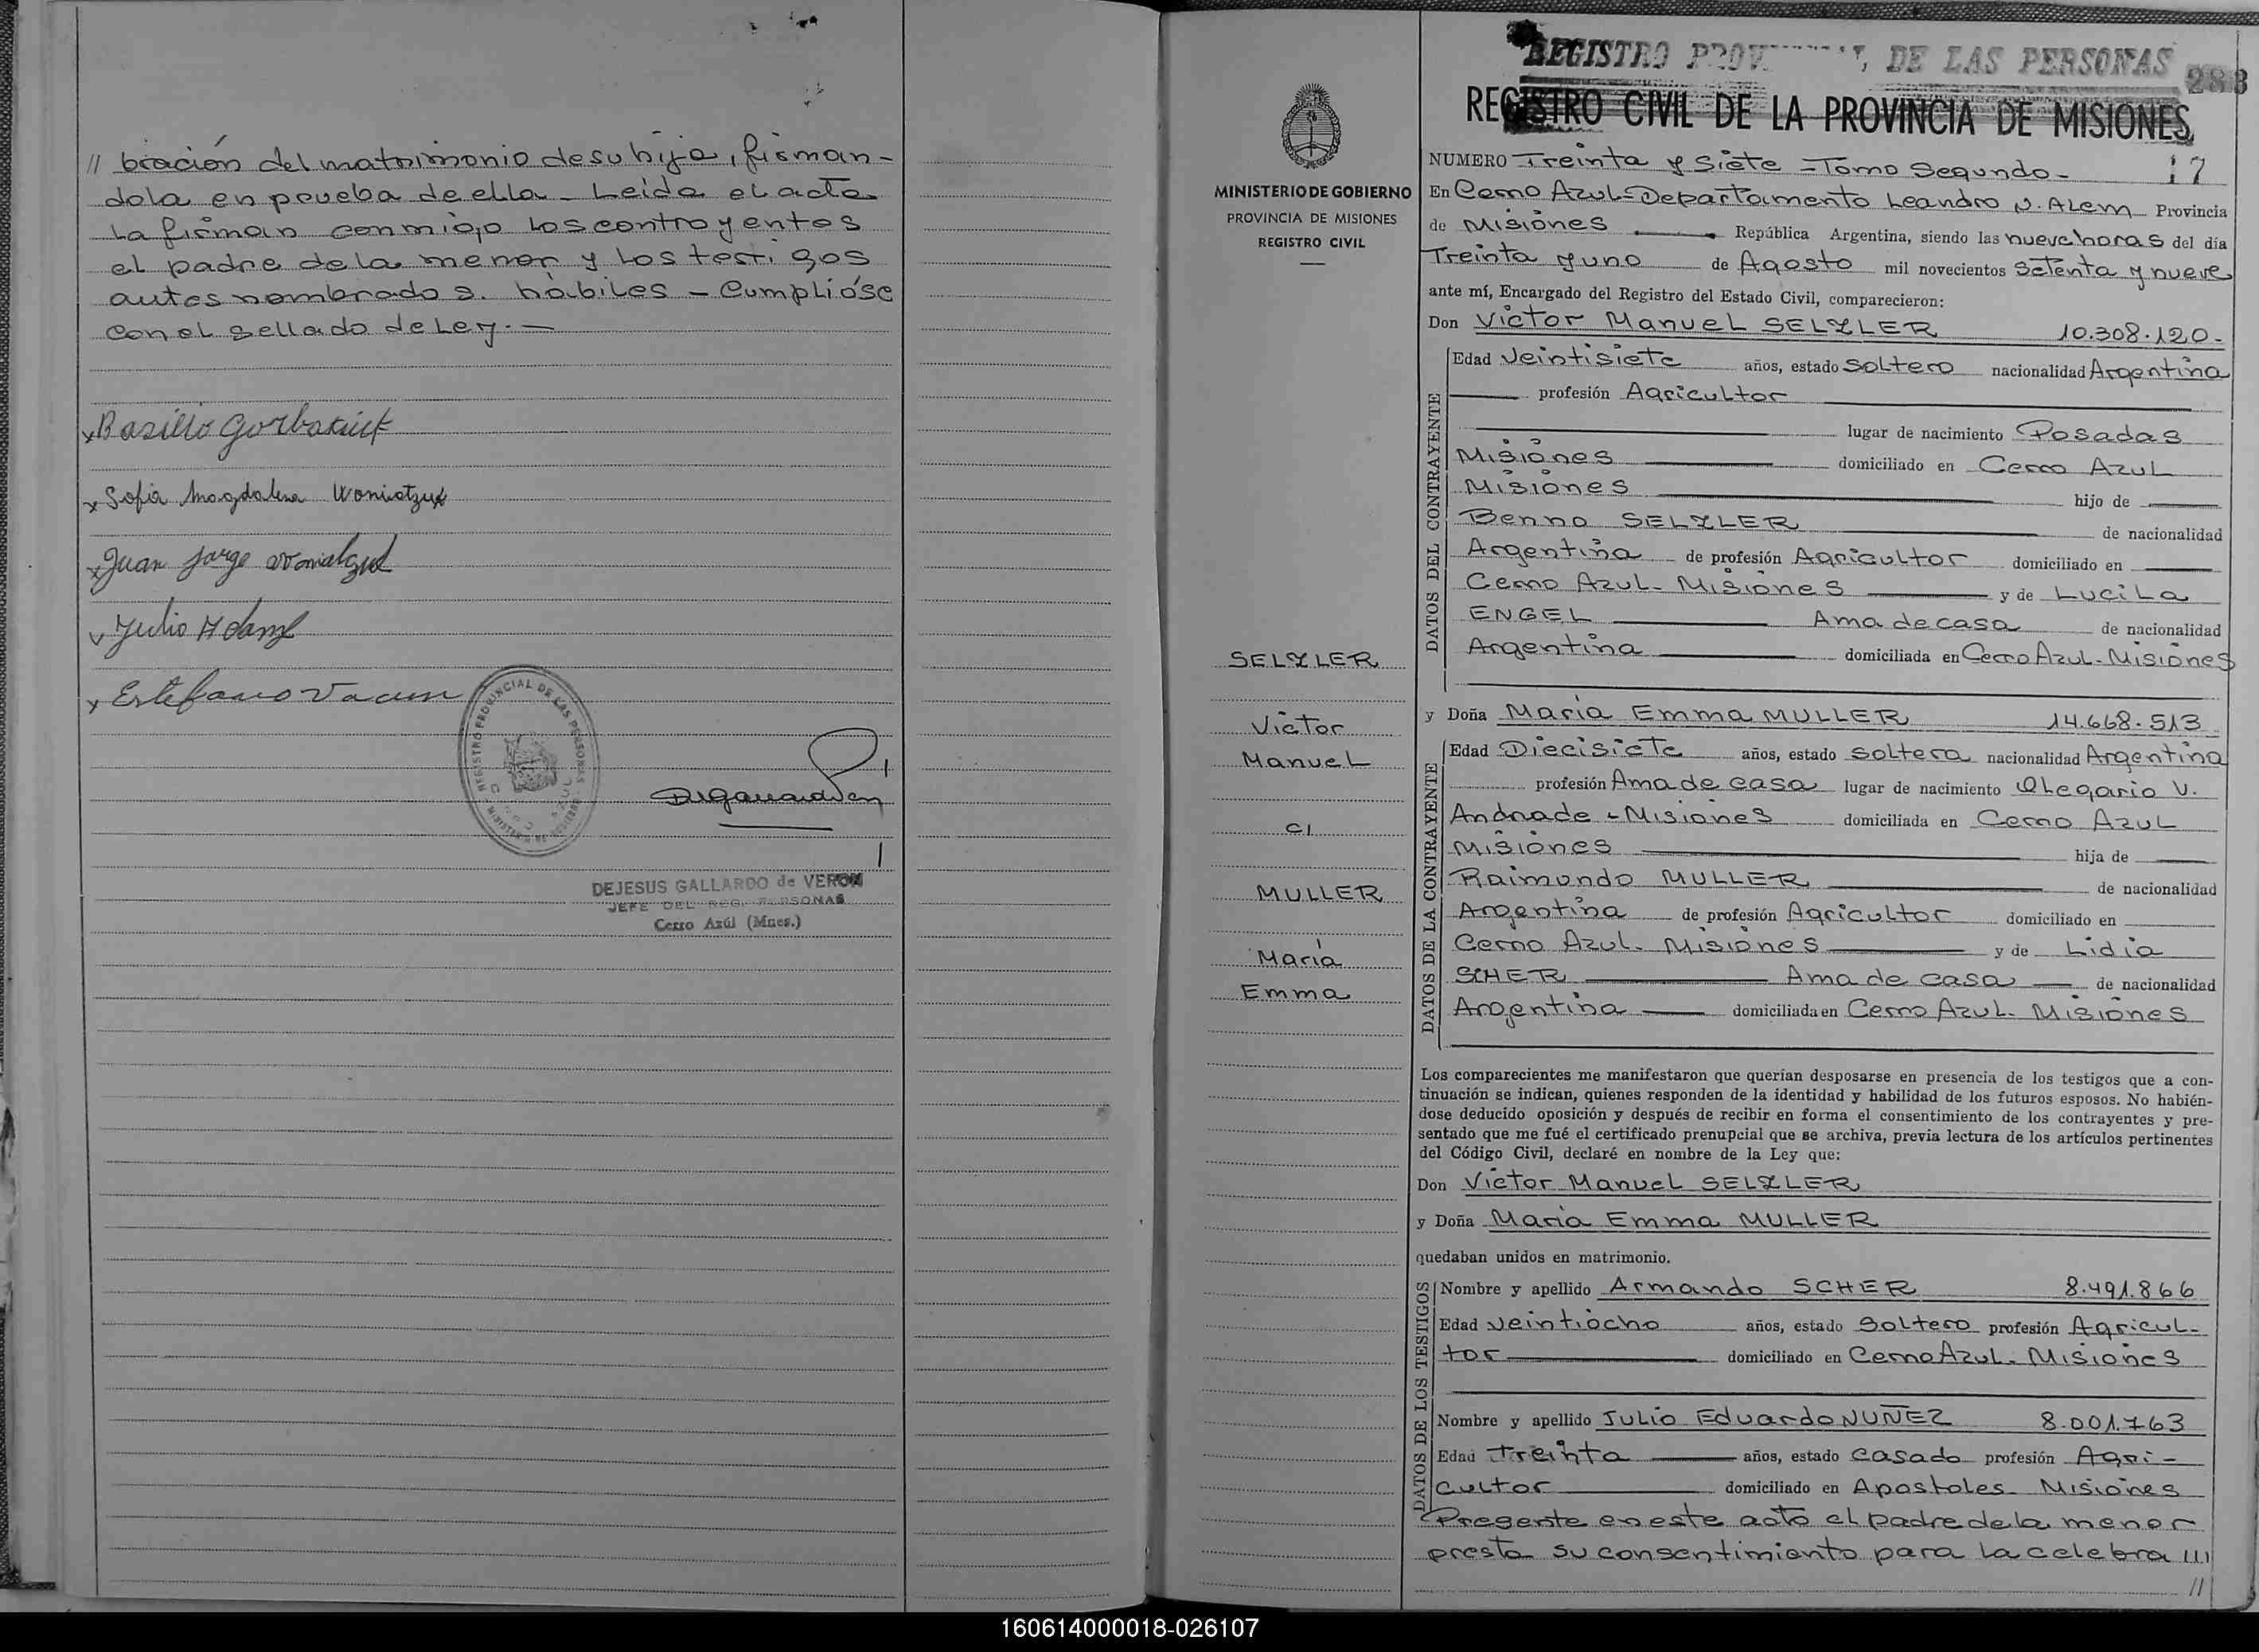 // bración del matrimonio de su hija, firman-
dola en prueba de ella - Leída el acta
la firman conmigo los contrayentes
el padre de la menor y los testigos
antes nombrados. hábiles - Cumplióse
con el sellado de Ley. —
x Basilio Gorbatiuk
x Sofia Magdalena Woniatzuk
x Juan Jorge Woniatzuk
Julio Adam
x Estefano Vacum
REGISTRO PROVINCIAL DE LAS PERSONAS
DEJESUS GALLARDO de VERON
JEFE DEL REG. PERSONAS
Cerro Azúl (Mnes.)
MINISTERIO DE GOBIERNO
PROVINCIA DE MISIONES
REGISTRO CIVIL
SELZLER
Victor
Manuel
c/
MULLER
María
Emma
REGISTRO PROVINCIAL DE LAS PERSONAS 283
REGISTRO CIVIL DE LA PROVINCIA DE MISIONES
NUMERO Treinta y Siete - Tomo Segundo - 17
En Cerro Azul - Departamento Leandro N. Alem Provincia
de Misiones República Argentina, siendo las nueve horas del día
Treinta y uno de Agosto mil novecientos Setenta y nueve
ante mí, Encargado del Registro del Estado Civil, comparecieron:
Don Victor Manuel SELZLER 10.308.120-
DATOS DEL CONTRAYENTE
Edad Veintisiete años, estado Soltero nacionalidad Argentina
profesión Agricultor
lugar de nacimiento Posadas
Misiones domiciliado en Cerro Azul
Misiones hijo de
Benno SELZLER de nacionalidad
Argentina de profesión Agricultor domiciliado en
Cerro Azul - Misiones y de Lucila
ENGEL Ama de casa de nacionalidad
Argentina domiciliada en Cerro Azul - Misiones
y Doña Maria Emma MULLER 14.668.513
DATOS DE LA CONTRAYENTE
Edad Diecisiete años, estado soltera nacionalidad Argentina
profesión Ama de casa lugar de nacimiento Olegario V.
Andrade - Misiones domiciliada en Cerro Azul
Misiones hija de
Raimundo MULLER de nacionalidad
Argentina de profesión Agricultor domiciliado en
Cerro Azul - Misiones y de Lidia
SCHER Ama de casa de nacionalidad
Argentina domiciliada en Cerro Azul - Misiones
Los comparecientes me manifestaron que querían desposarse en presencia de los testigos que a con-
tinuación se indican, quienes responden de la identidad y habilidad de los futuros esposos. No habién-
dose deducido oposición y después de recibir en forma el consentimiento de los contrayentes y pre-
sentado que me fué el certificado prenupcial que se archiva, previa lectura de los artículos pertinentes
del Código Civil, declaré en nombre de la Ley que:
Don Victor Manuel SELZLER
y Doña Maria Emma MULLER
quedaban unidos en matrimonio.
DATOS DE LOS TESTIGOS
Nombre y apellido Armando SCHER 8.491.866
Edad veintiocho años, estado Soltero profesión Agricul-
tor domiciliado en Cerro Azul - Misiones
Nombre y apellido Julio Eduardo NUÑEZ 8.001.763
Edad Treinta años, estado casado profesión Agri-
cultor domiciliado en Apostoles - Misiones
Presente en este acto el padre de la menor
presta su consentimiento para la celebra ///
//
160614000018-026107